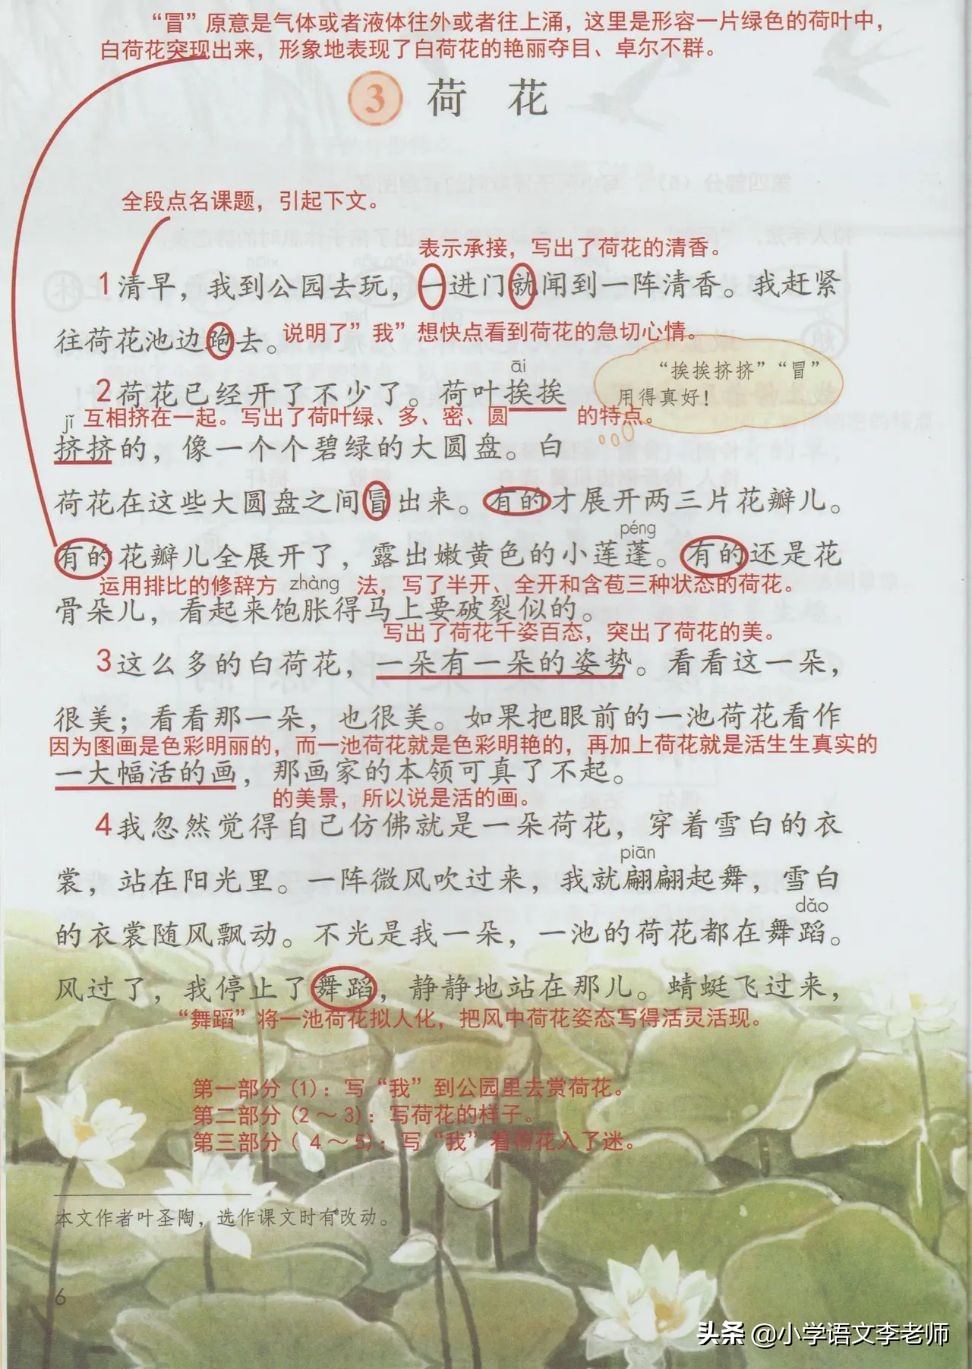 “冒”原意是气体或者液体往外或者往上涌，这里是形容一片绿色的荷叶中，
白荷花突现出来，形象地表现了白荷花的艳丽夺目、卓尔不群。
3 荷 花
全段点名课题，引起下文。
表示承接，写出了荷花的清香。
1清早，我到公园去玩，一进门就闻到一阵清香。我赶紧
往荷花池边跑去。说明了”我”想快点看到荷花的急切心情。
āi
“挨挨挤挤”“冒”
用得真好！
2荷花已经开了不少了。荷叶挨挨
jǐ 互相挤在一起。写出了荷叶绿、多、密、圆 的特点。
挤挤的，像一个个碧绿的大圆盘。白
荷花在这些大圆盘之间冒出来。有的才展开两三片花瓣儿。
péng
有的花瓣儿全展开了，露出嫩黄色的小莲蓬。有的还是花
运用排比的修辞方 zhàng 法，写了半开、全开和含苞三种状态的荷花。
骨朵儿，看起来饱胀得马上要破裂似的。
写出了荷花千姿百态，突出了荷花的美。
3这么多的白荷花，一朵有一朵的姿势。看看这一朵，
很美；看看那一朵，也很美。如果把眼前的一池荷花看作
因为图画是色彩明丽的，而一池荷花就是色彩明艳的，再加上荷花就是活生生真实的
一大幅活的画，那画家的本领可真了不起。
的美景，所以说是活的画。
4我忽然觉得自己仿佛就是一朵荷花，穿着雪白的衣
piān
裳，站在阳光里。一阵微风吹过来，我就翩翩起舞，雪白
dǎo
的衣裳随风飘动。不光是我一朵，一池的荷花都在舞蹈。
风过了，我停止了舞蹈，静静地站在那儿。蜻蜓飞过来，
“舞蹈”将一池荷花拟人化，把风中荷花姿态写得活灵活现。
第一部分(1)：写“我”到公园里去赏荷花。
第二部分(2～3)：写荷花的样子。
第三部分( 4～5)：写“我”看荷花入了迷。
本文作者叶圣陶，选作课文时有改动。
6
头条 @小学语文李老师